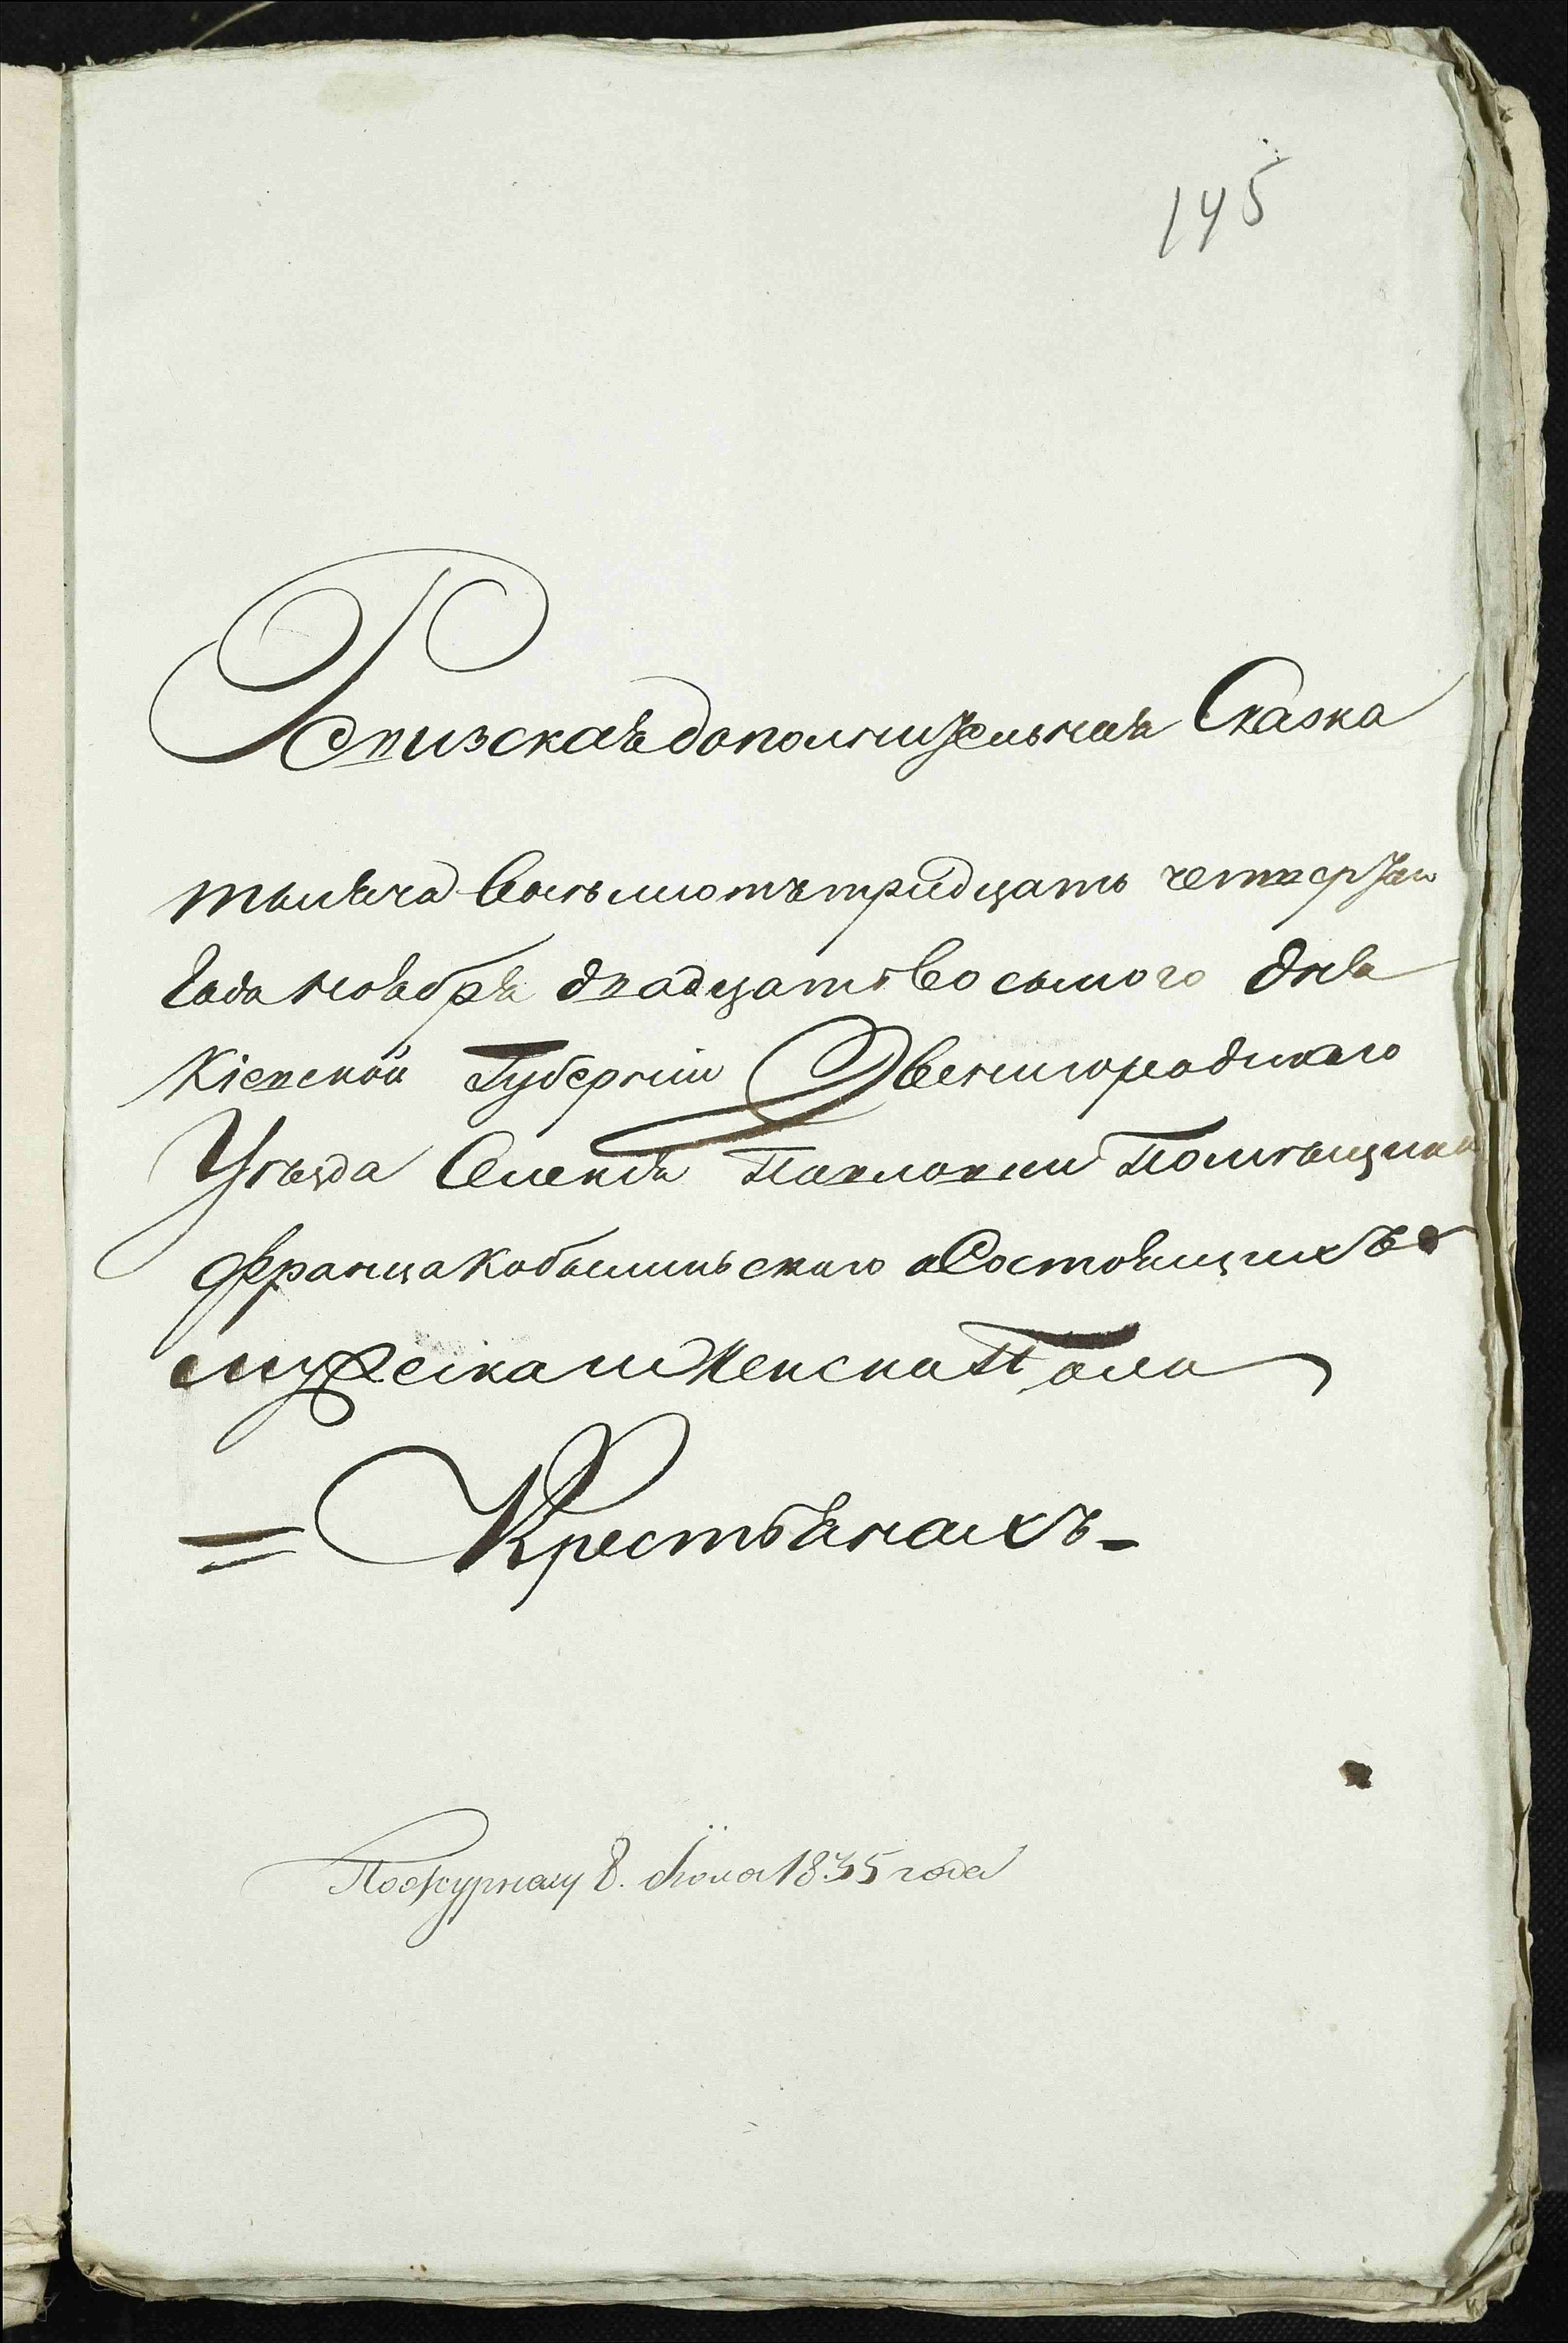 145
Ревизская дополнительная Сказка
тысяча восемьсотъ тридцать четвертаго
Года ноября двадцать восьмого дня
Кіевской Губерніи Звенигородскаго
Уѣзда Селенія Павловки Помѣщика
Франца Кобылинскаго о Состоящихъ
мужеска и женска Пола
= Крестьянахъ -
По журналу 8. Іюля 1835 года